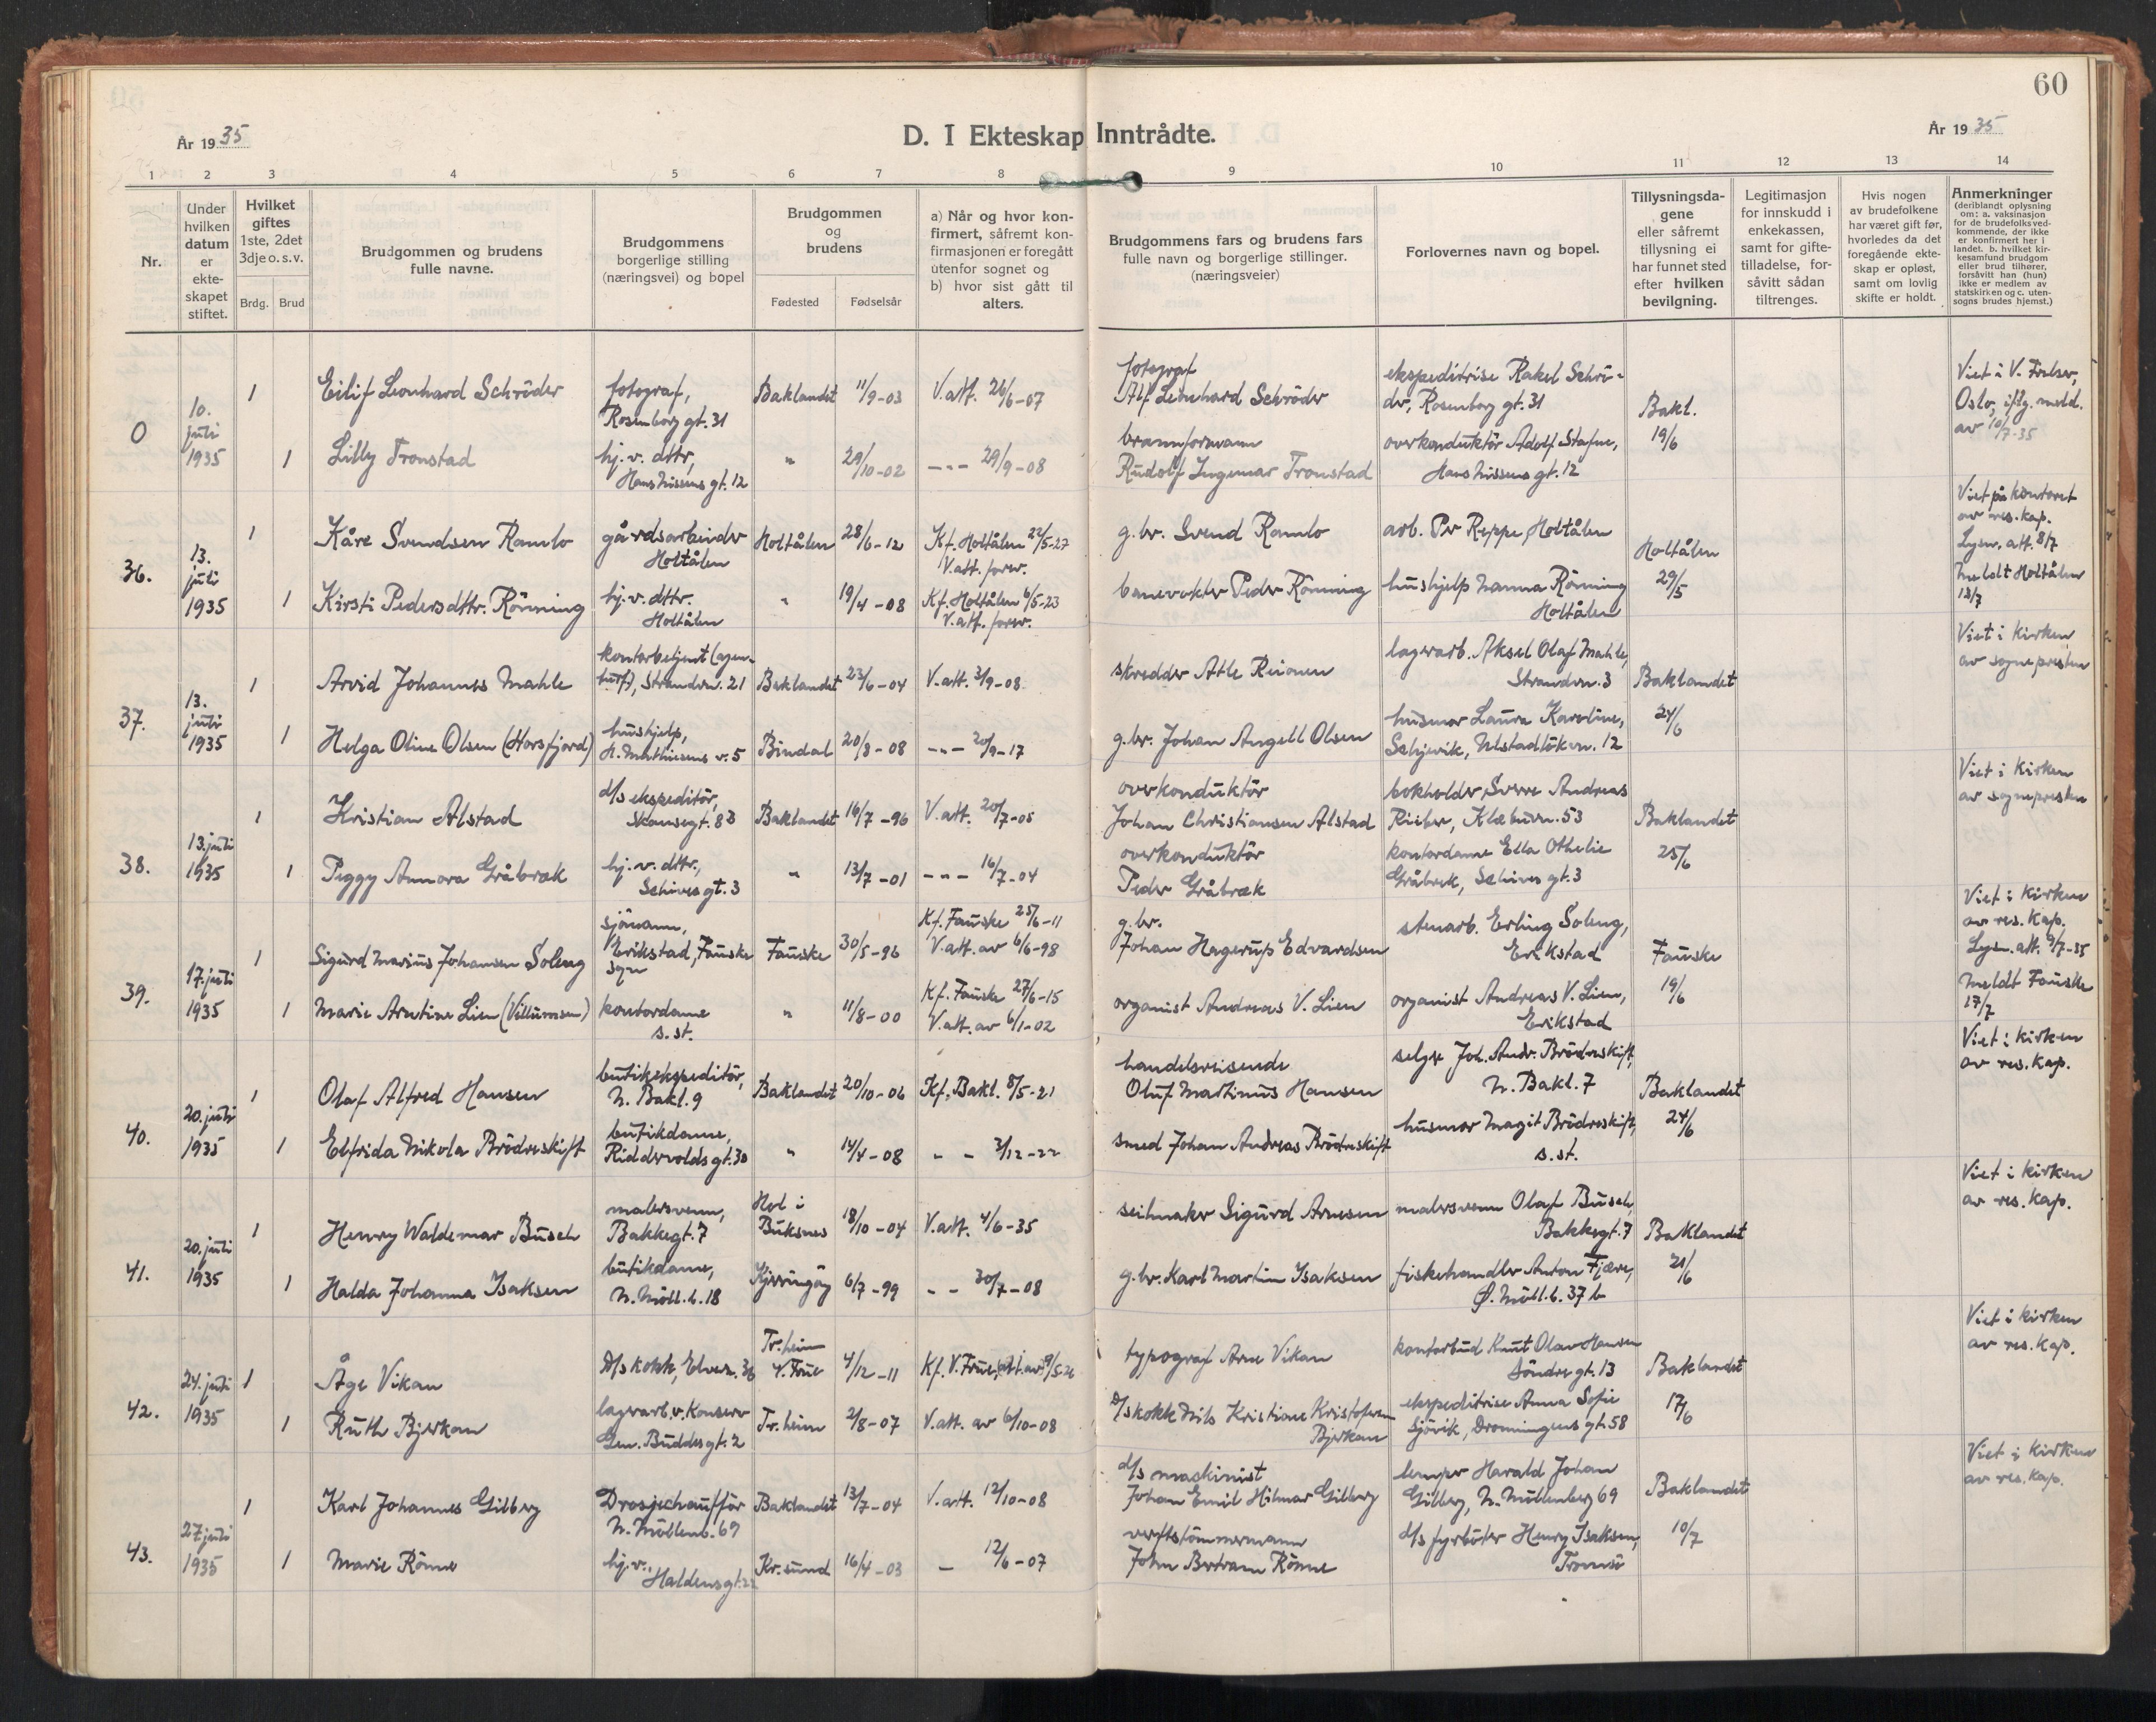 60
År 1935
D. I Ekteskap Inntrådte.
År 1935
1 2 3 4 5 6 7 8 9 10 11 12 13 14
Nr.
Under hvilken datum er ekte-skapet stiftet.
Hvilket giftes 1ste, 2det 3dje o.s.v.
Brdg. Brud
Brudgommen og brudens fulle navne.
Brudgommens borgerlige stilling (næringsvei) og bopel
Brudgommen og brudens
Fødested Fødselsår
a) Når og hvor kon-firmert, såfremt kon-firmasjonen er foregått utenfor sognet og b) hvor sist gått til alters.
Brudgommens fars og brudens fars fulle navn og borgerlige stillinger. (næringsveier)
Forlovernes navn og bopel.
Tillysningsda-gene eller såfremt tillysning ei har funnet sted efter hvilken bevilgning.
Legitimasjon for innskudd i enkekassen, samt for gifte-tilladelse, for-såvitt sådan tiltrenges.
Hvis nogen av brudefolkene har været gift før, hvorledes da det foregående ekte-skap er opløst, samt om lovlig skifte er holdt.
Anmerkninger (deriblandt oplysning om: a. vaksinasjon for de brudefolks ved-kommende, der ikke er konfirmert her i landet. b. hvilket kir-kesamfund brudgom eller brud tilhører, forsåvitt han (hun) ikke er medlem av statskirken og c. uten-sogns brudes hjemst.)
0
10. juli 1935
1 Eilif Leonhard Schrøder fotograf, Rosenborg gt. 31 Baklandet 11/9-03 V. att. 26/6-07 fotograf Alf Leonhard Schröder ekspeditrise Rakel Schrö-der, Rosenborg gt. 31 Bakl. 19/6 Viet i V. Frelser, Oslo, iflg. medd. av 10/7-35
1 Lilly Tronstad hj. v. dttr, Hans Nissens gt. 12 " 29/10-02 --- 29/9-08 brannformann Rudolf Ingemar Tronstad overkonduktör Adolf Stafne, Hans Nissens gt. 12
36.
13. juli 1935
1 Kåre Svendsen Ramlo gårdsarbeider Holtålen Holtålen 28/6-12 Kf. Holtålen 22/5-27 V. att. forev. g.br. Svend Ramlo arb. Per Reppe, Holtålen Holtålen 29/5 Viet på kontoret av res. kap. Lysn. att. 8/7 Meldt Holtålen 13/7
1 Kirsti Pedersdttr. Rönning hj. v. dttr. Holtålen " 19/4-08 Kf. Holtålen 6/5-23 V. att. forev. banevokter Peder Rönning hushjelp Nanna Rönning Holtålen
37.
13. juli 1935
1 Arvid Johannes Mahle kontorbetjent (agen-turf), Strandvn. 21 Baklandet 23/6-04 V. att. 3/9-08 skredder Atle Reionen lagerarb. Aksel Olaf Mahle, Strandvn. 3 Baklandet 24/6 Viet i kirken av sognepresten
1 Helga Oline Olsen (Horsfjord) hushjelp, H. Mathiesens v. 5 Bindal 20/3-08 --- 20/9-17 g.br. Johan Angell Olsen husmor Laura Karoline, Schjevik, Ulstadlökvn. 12
38.
13. juli 1935
1 Kristian Alstad d/s ekspeditör, Skansegt. 8 Baklandet 16/7-96 V. att. 20/7-05 overkonduktör Johan Christiansen Alstad bokholder Sverre Andreas Rieber, Klæbuvn. 53 Baklandet 25/6 Viet i kirken av sognepresten
1 Peggy Annora Gråbræk hj. v. dttr., Schives gt. 3 " 13/7-01 --- 16/7-04 overkonduktör Peder Gråbræk kontordame Ella Othelie Gråbrek, Schives gt. 3
39.
17. juli 1935
1 Sigurd Marius Johansen Soleng sjömann, Erikstad, Fauske sgn Fauske 30/5-96 Kf. Fauske 25/6-11 V. att. av 6/6-98 g.br. Johan Hagerup Edvardsen stenarb. Erling Soleng, Erikstad Fauske 19/6 Viet i kirken av res. kap. Lysn. att. 9/7-35 Meldt Fauske 17/7
1 Marie Arntine Lien (Villumsen) kontordame s. st. " 11/8-00 Kf. Fauske 27/6-15 V. att. av 6/1-02 organist Andreas V. Lien organist Andreas V. Lien, Erikstad
40.
20. juli 1935
1 Olaf Alfred Hansen butikekspeditör, N. Bakl. 9 Baklandet 20/10-06 Kf. Bakl. 8/5-21 handelsreisende Oluf Martinus Hansen selger Joh. Andr. Brödreskift, N. Bakl. 7 Baklandet 24/6 Viet i kirken av res. kap.
1 Elfrida Nikola Brödreskift butikdame, Riddervolds gt. 30 " 14/4-08 - - 3/12-22 smed Johan Andreas Brödreskift husmor Magit Brödreskift, s. st.
41.
20. juli 1935
1 Henry Waldemar Busch malersvenn, Bakkegt. 7 Hol i Buksnes 18/10-04 V. att. 4/6-35 seilmaker Sigurd Arnesen malersvenn Olaf Busch, Bakkegt. 7 Baklandet 21/6 Viet i kirken av res. kap.
1 Halda Johanna Isaksen butikdame, N. Möll.b. 18 Kjerringöy 6/7-99 - - 30/7-08 g.br. Karl Martin Isaksen fiskehandler Anton Fjære, Ø. Möll.b. 37 b
42.
24. juli 1935
1 Åge Vikan D/s kokk, Elvegt. 36 Tr.heim V. Frue 4/12-11 Kf. V. Frue, typograf Arne Vikan kontorbud Knut Olav Hansen Söndre gt. 13 Baklandet 17/6 Viet i kirken av res. kap.
1 Ruth Bjerkan lagerarb. v. Konserv Gen. Buddes gt. 2 Tr.heim 2/8-07 V. att. av 6/10-08 D/s kokk Nils Kristian Kristofersen Bjerkan ekspeditrise Anna Sofie Sjövik, Dronningens gt. 58
43.
27. juli 1935
1 Karl Johannes Gilberg Drosjechauffør N. Möllenb. 69 Baklandet 13/7-04 V. att. 12/10-08 d/s maskinist Johan Emil Hilmar Gilberg lemper Harald Johan Gilberg, N. Möllenberg 69 Baklandet 10/7 Viet i kirken av res. kap.
1 Marie Rönne hj. v., Haldens gt. 22 Kr.sund 16/4-03 - 12/6-07 verftstömmermann John Bertram Rönne d/s fyrböter Henry Isaksen, Tromsö